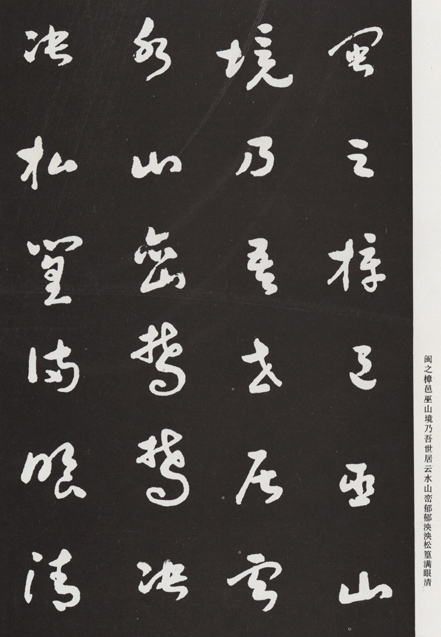 闽之樟邑巫山
境乃吾世居云
水山峦郁郁泱
泱松篁满眼清
闽之樟邑巫山境乃吾世居云水山峦郁郁泱泱松篁满眼清